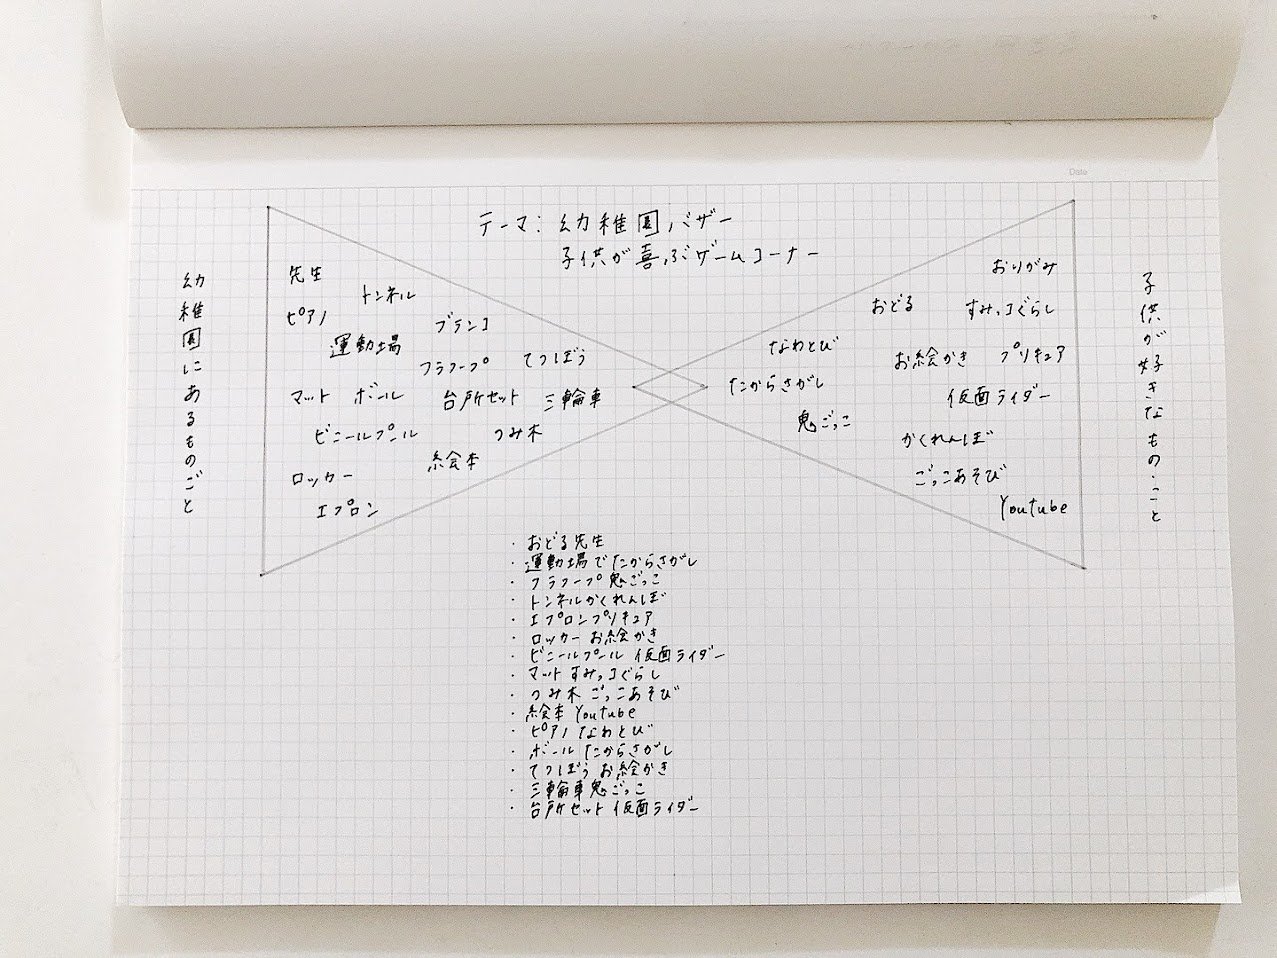 Date
テーマ：幼稚園バザー
子供が喜ぶゲームコーナー
幼稚園にあるものごと
先生
トンネル
ピアノ
ブランコ
運動場
フラフープ
てつぼう
マット
ボール
台所セット
三輪車
ビニールプール
つみ木
絵本
ロッカー
エプロン
おりがみ
おどる
すみっコぐらし
なわとび
お絵かき
プリキュア
たからさがし
仮面ライダー
鬼ごっこ
かくれんぼ
ごっこあそび
Youtube
子供が好きなもの・こと
・おどる先生
・運動場でたからさがし
・フラフープ鬼ごっこ
・トンネルかくれんぼ
・エプロンプリキュア
・ロッカーお絵かき
・ビニールプール仮面ライダー
・マットすみっコぐらし
・つみ木ごっこあそび
・絵本Youtube
・ピアノなわとび
・ボールたからさがし
・てつぼうお絵かき
・三輪車鬼ごっこ
・台所セット仮面ライダー